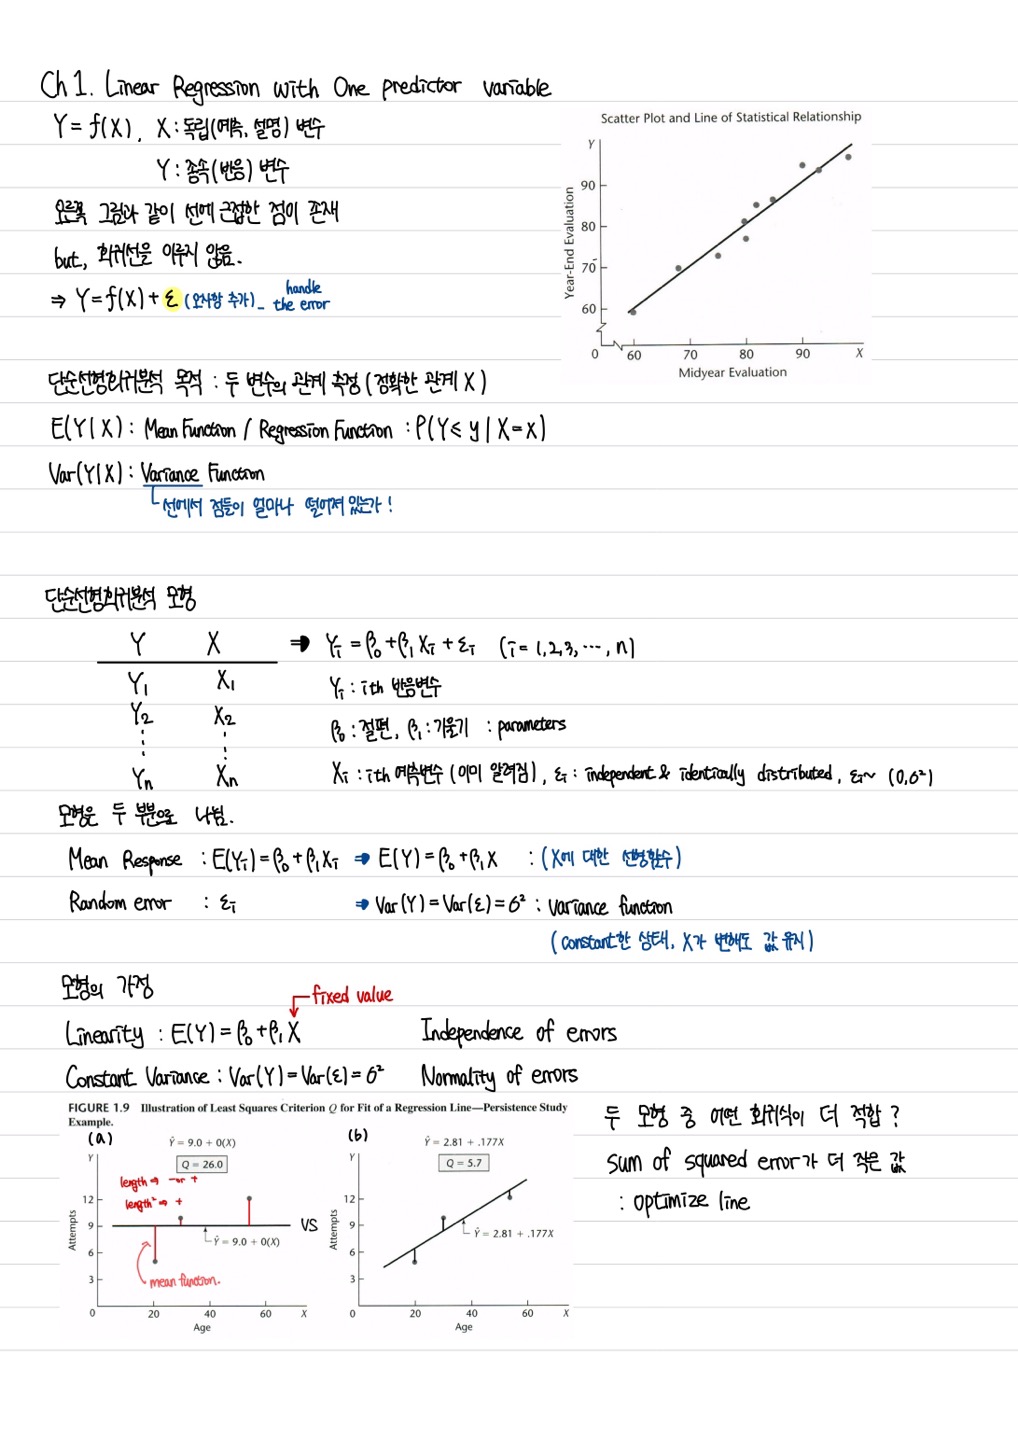 Ch 1. Linear Regression with One predictor variable
Y = f(X), X : 독립(예측, 설명) 변수
Y : 종속(반응) 변수
오른쪽 그림과 같이 선에 근접한 점이 존재
but, 회귀선을 이루지 않음.
⇒ Y = f(X) + ε (오차항 추가) _ handle the error
Scatter Plot and Line of Statistical Relationship
Y
90
80
70
60
Year-End Evaluation
0 60 70 80 90 X
Midyear Evaluation
단순선형회귀분석 목적 : 두 변수의 관계 측정 (정확한 관계 X)
E(Y|X) : Mean Function / Regression Function : P(Y ≤ y | X = x)
Var(Y|X) : Variance Function
선에서 점들이 얼마나 떨어져 있는가!
단순선형회귀분석 모형
Y X ⇒ Yi = β0 + β1 Xi + εi (i = 1, 2, 3, ⋯, n)
Y1 X1 Yi : ith 반응변수
Y2 X2 β0 : 절편, β1 : 기울기 : parameters
⋮ ⋮
Yn Xn Xi : ith 예측변수 (이미 알려짐), εi : independent & identically distributed, εi ~ (0, σ²)
모형은 두 부분으로 나뉨.
Mean Response : E(Yi) = β0 + β1 Xi ⇒ E(Y) = β0 + β1 X : (X에 대한 선형함수)
Random error : εi ⇒ Var(Y) = Var(ε) = σ² : variance function
(constant한 상태, X가 변해도 값 유지)
모형의 가정
fixed value
Linearity : E(Y) = β0 + β1 X Independence of errors
Constant Variance : Var(Y) = Var(ε) = σ² Normality of errors
FIGURE 1.9 Illustration of Least Squares Criterion Q for Fit of a Regression Line—Persistence Study
Example.
(a)
Ŷ = 9.0 + 0(X)
Q = 26.0
Y
length ⇒ - or +
length² ⇒ +
12
9
6
3
Attempts
Ŷ = 9.0 + 0(X)
mean function.
0 20 40 60 X
Age
VS
(b)
Ŷ = 2.81 + .177X
Q = 5.7
Y
12
9
6
3
Attempts
Ŷ = 2.81 + .177X
0 20 40 60 X
Age
두 모형 중 어떤 회귀식이 더 적합?
sum of squared error가 더 작은 값
: optimize line